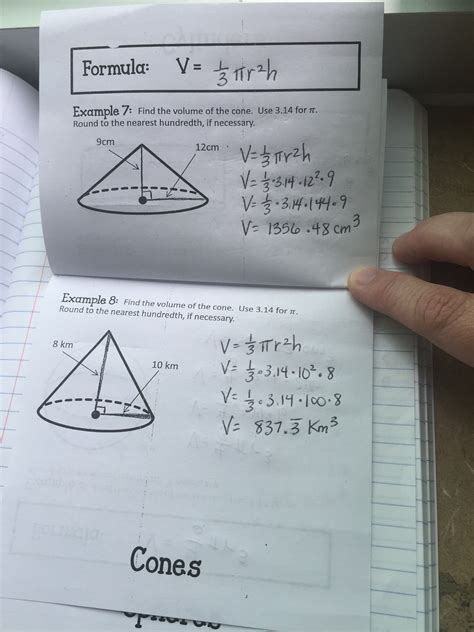 Formula: V = 1/3 πr²h
Example 7: Find the volume of the cone. Use 3.14 for π.
Round to the nearest hundredth, if necessary.
9cm
12cm
V=1/3πr²h
V=1/3·3.14·12²·9
V=1/3·3.14·144·9
V= 1356.48 cm³
Example 8: Find the volume of the cone. Use 3.14 for π.
Round to the nearest hundredth, if necessary.
8 km
10 km
V=1/3πr²h
V=1/3·3.14·10²·8
V=1/3·3.14·100·8
V= 837.3̅ Km³
Cones
Spheres